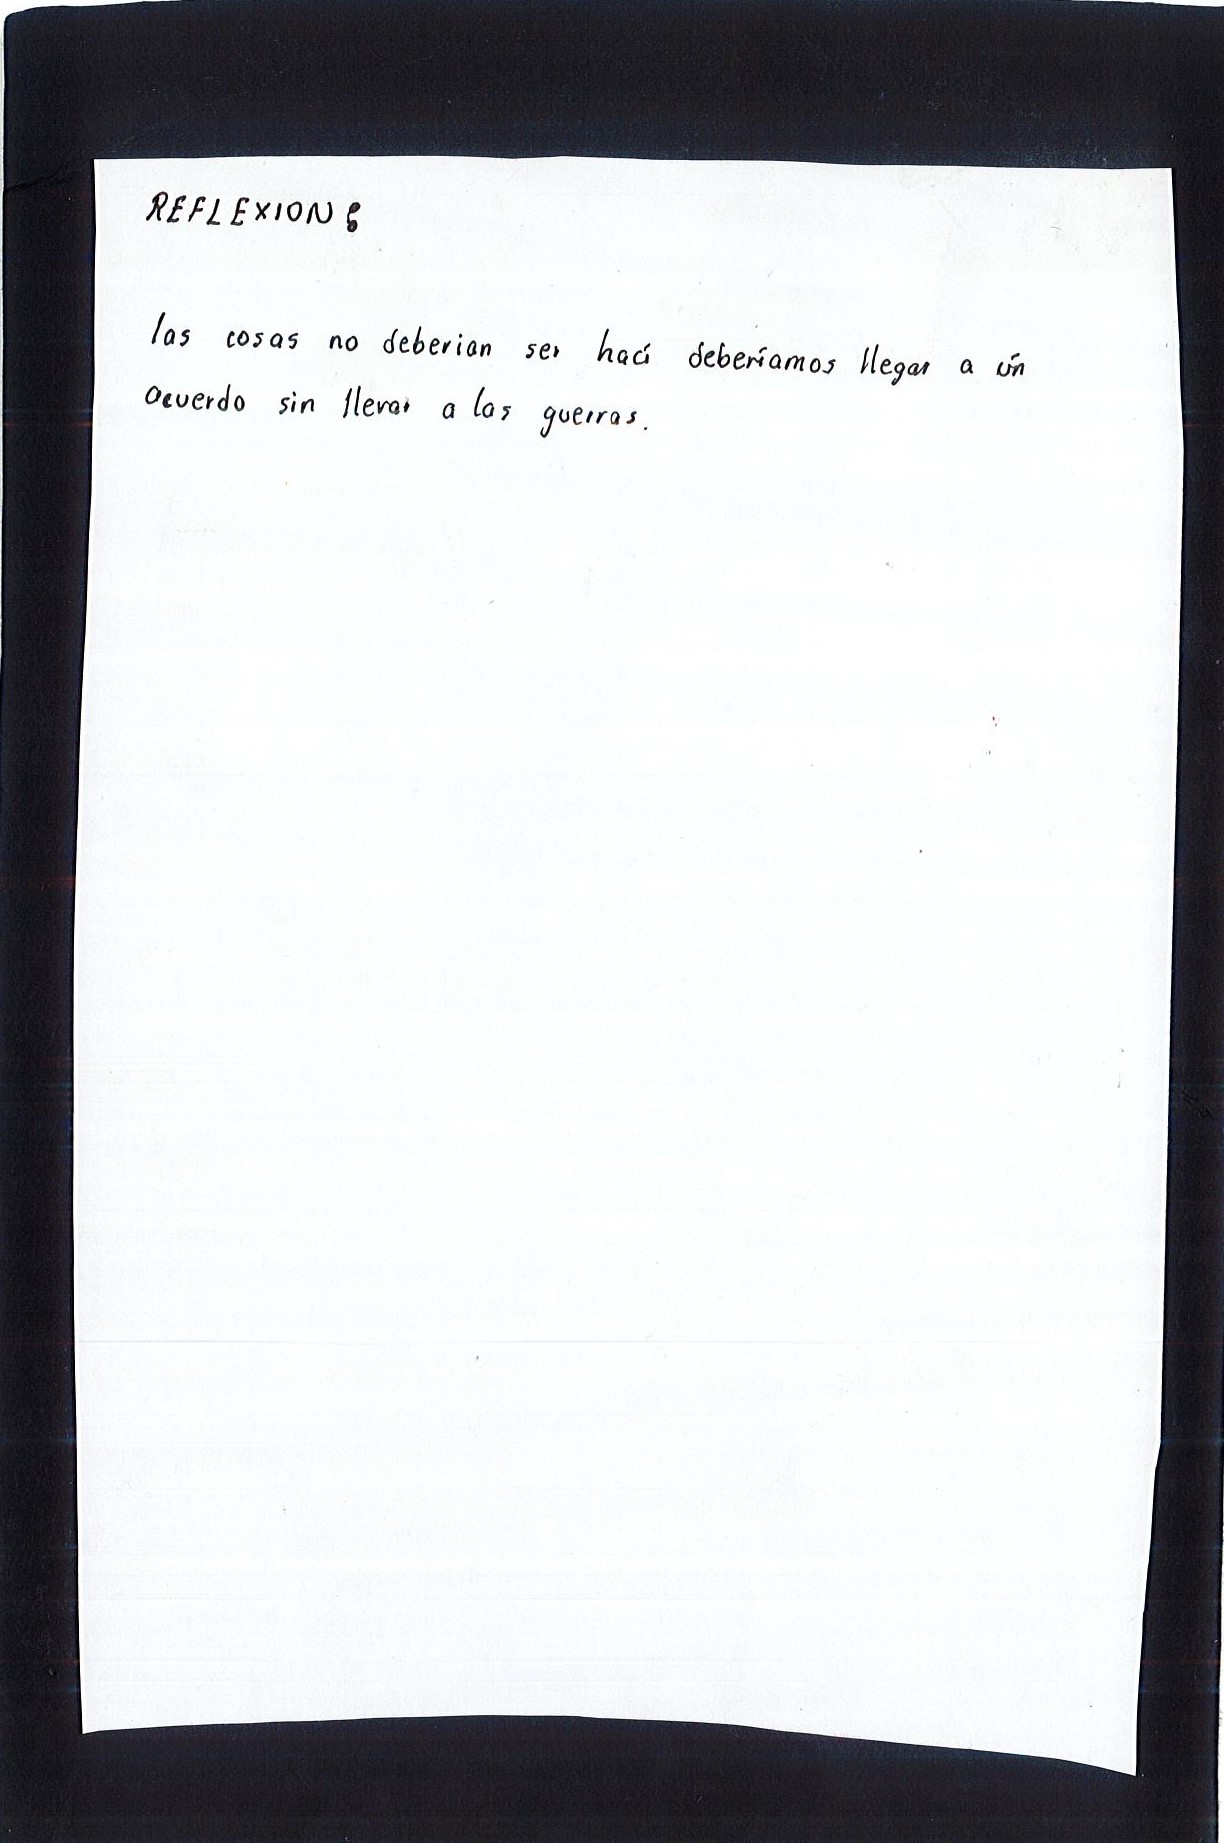 REFLEXION:
las cosas no deberian ser hací deberíamos llegar a ún
acuerdo sin llevar a las guerras.